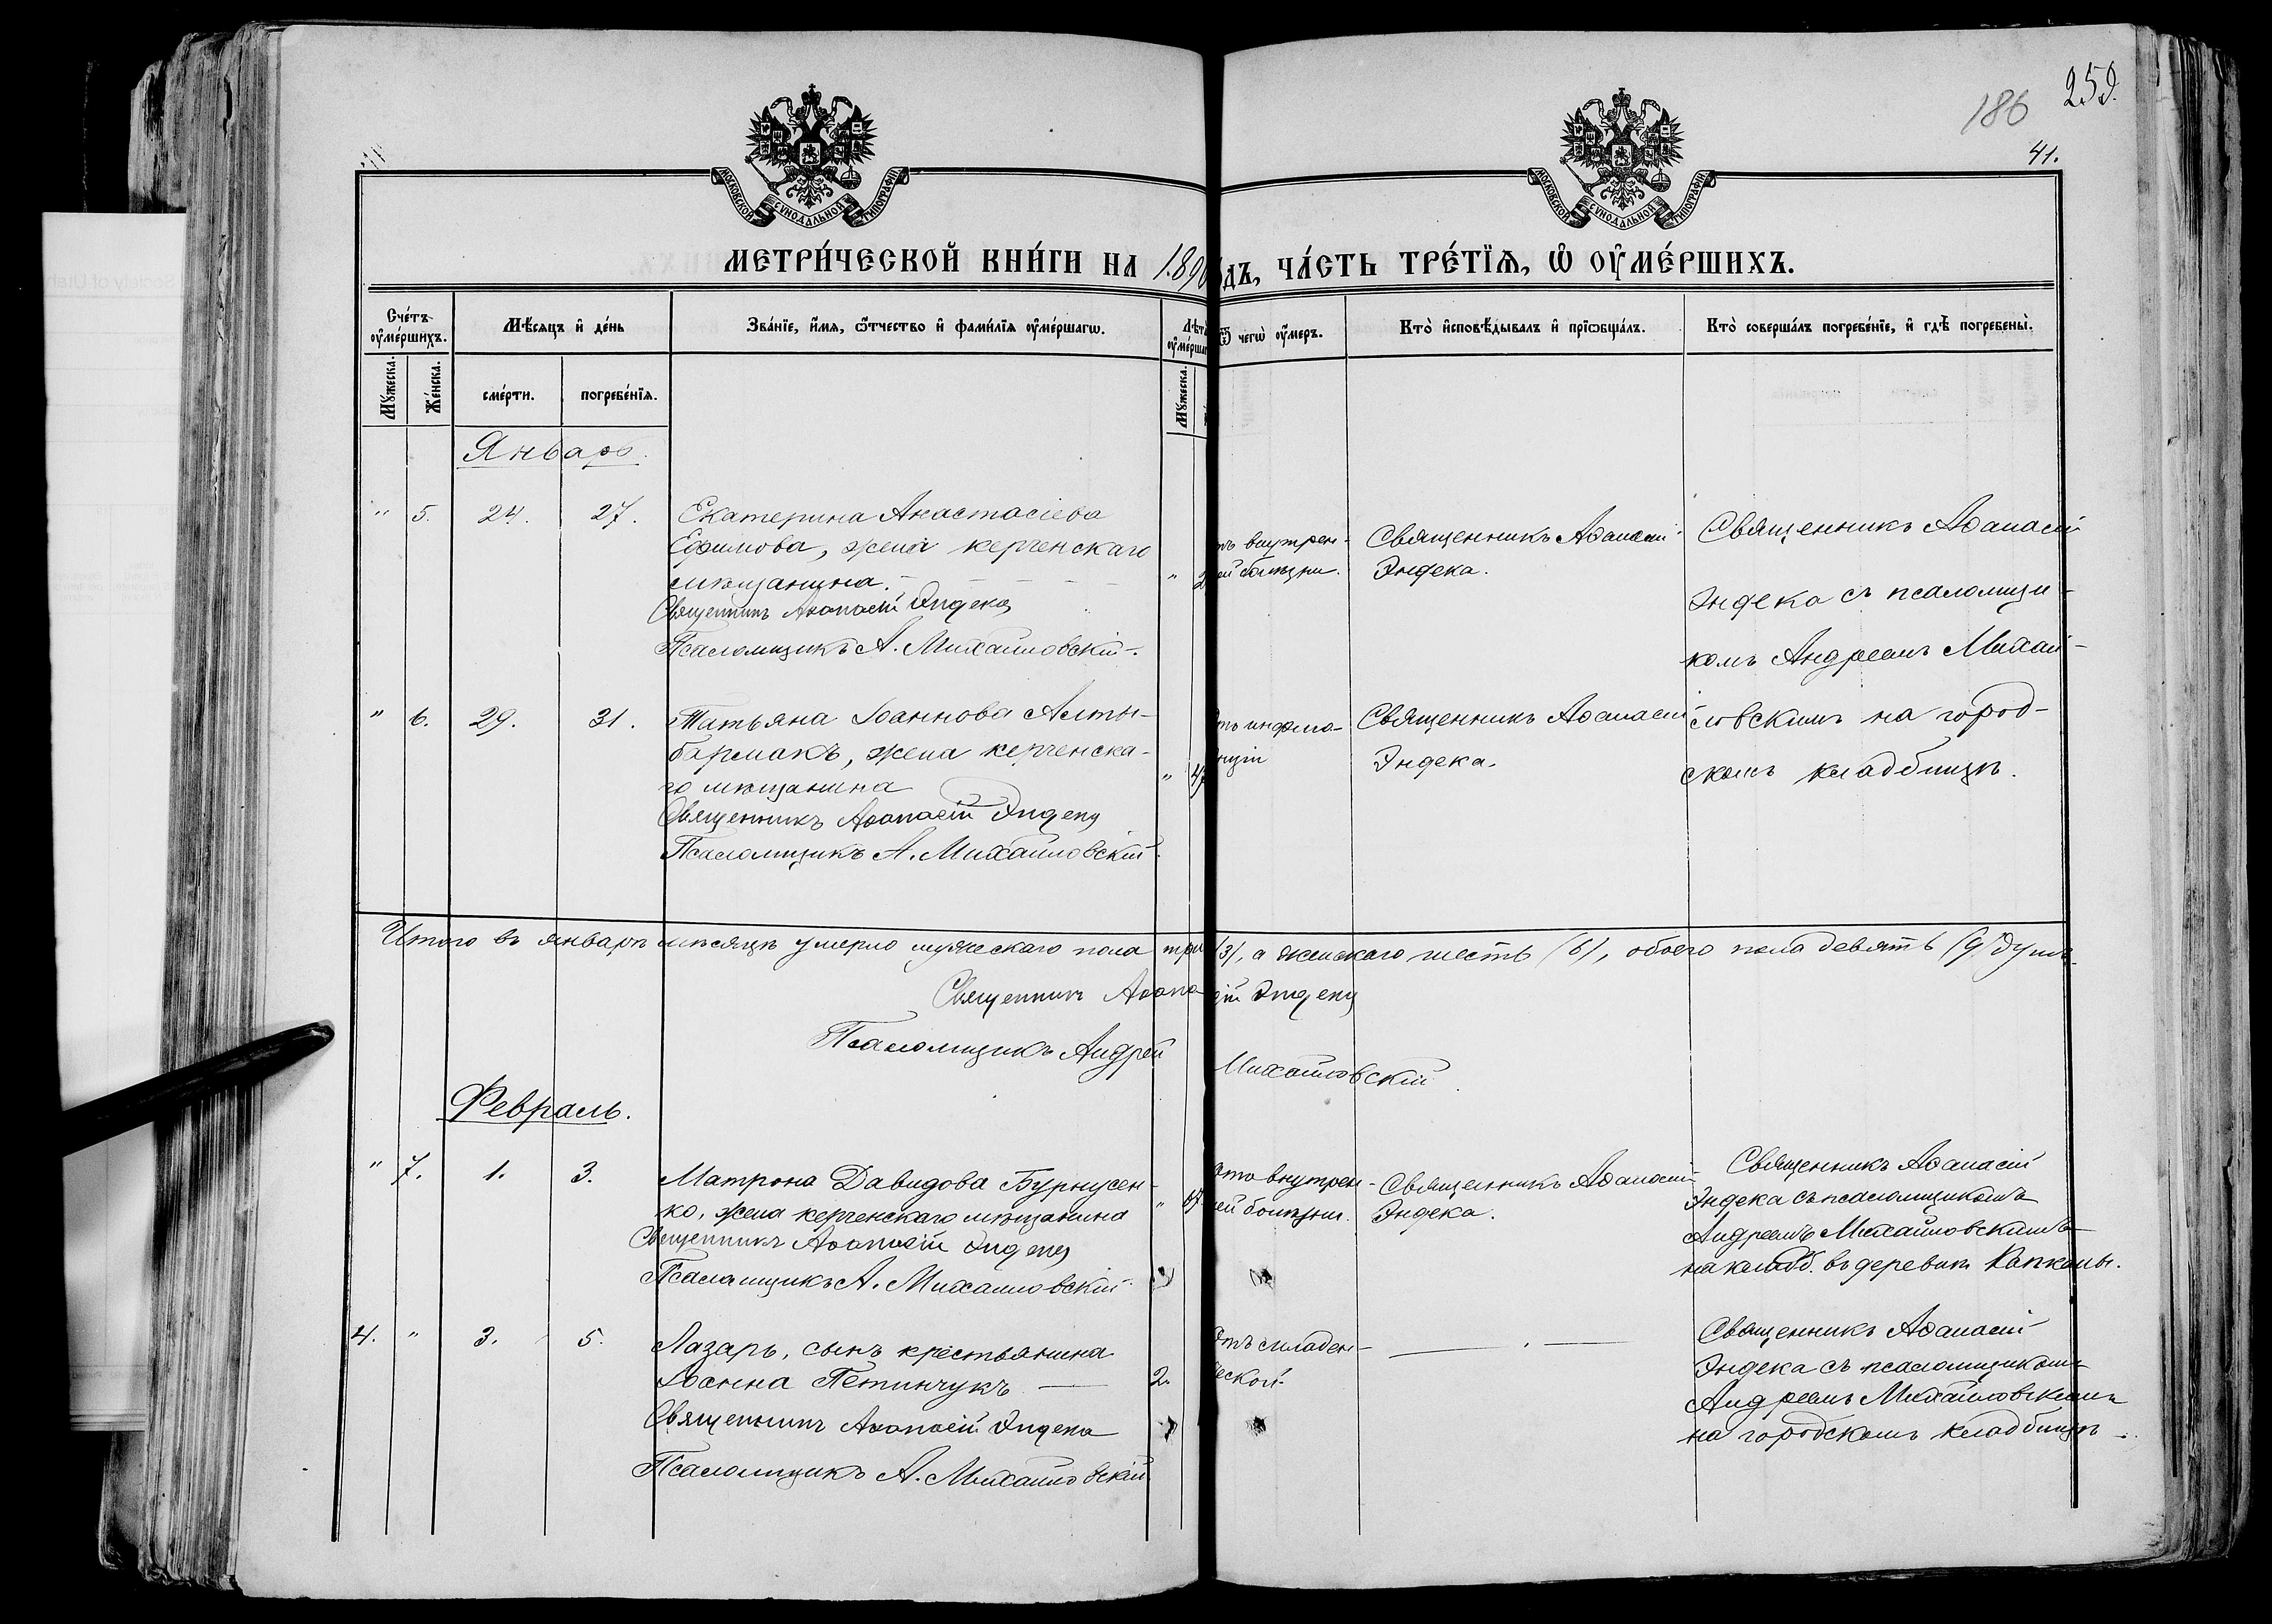 186
259.
41.
МОСКОВСКОЙ СѴНОДАЛЬНОЙ ТИПОГРАФІИ
МОСКОВСКОЙ СѴНОДАЛЬНОЙ ТИПОГРАФІИ
МЕТРИ́ЧЕСКОЙ КНИ́ГИ НА 1890 ДЪ, ЧА́СТЬ ТРЕ́ТІѦ, Ѡ ОУМЕ́РШИХЪ.
Сче́тъ оуме́ршихъ.
Мѣ́сяцъ и де́нь
Зва́нїе, и́мя, ѻ́тчество и фами́лїя оуме́ршагѡ.
Лѣт оуме́рша
Ѿ чегѡ̀ оу́меръ.
Кто̀ исповѣ́дывалъ и прїѡбща́лъ.
Кто̀ соверша́лъ погребе́нїе, и гдѣ̀ погребены̀.
Му́жеска.
Же́нска.
сме́рти.
погребе́нїя.
Му́жеска.
Январь.
" 5. 24. 27. Екатерина Анастасіева
Ефимова, жена керченскаго
мѣщанина.
Священникъ Аѳанасій Эндека
Псаломщикъ А. Михайловскій.
" 2
тъ внутрен-
ей болѣзни.
Священникъ Аѳанасій
Эндека.
Священникъ Аѳанасій
Эндека съ псаломщи-
комъ Андреемъ Михай-
ловскимъ на город-
скомъ кладбищѣ.
" 6. 29. 31. Татьяна Іоаннова Алты-
бармакъ, жена керченска-
го мѣщанина
Священникъ Аѳанасій Эндека
Псаломщикъ А. Михайловскій.
" 47
тъ инфлю-
нціи
Священникъ Аѳанасій
Эндека.
Итого въ январѣ мѣсяцѣ умерло мужескаго пола три (3), а женскаго шесть (6), обоего пола девять (9) душъ.
Священникъ Аѳана ій Эндека
Псаломщикъ Андрей Михайловскій.
Февраль.
" 7. 1. 3. Матрона Давидова Бурнусен-
ко, жена керченскаго мѣщанина
Священникъ Аѳанасій Эндека
Псаломщикъ А. Михайловскій.
"
отъ внутрен-
ей болѣзни.
Священникъ Аѳанасій
Эндека.
Священникъ Аѳанасій
Эндека съ псаломщикомъ
Андреемъ Михайловскимъ
на кладб. въ деревнѣ Капканы.
4. " 3. 5. Лазарь, сынъ крестьянина
Іоанна Петинчукъ
Священникъ Аѳанасій Эндека
Псаломщикъ А. Михайловскій
2.
отъ младен-
ческой
Священникъ Аѳанасій
Эндека съ псаломщикомъ
Андреемъ Михайловскимъ
на городскомъ кладбищѣ.